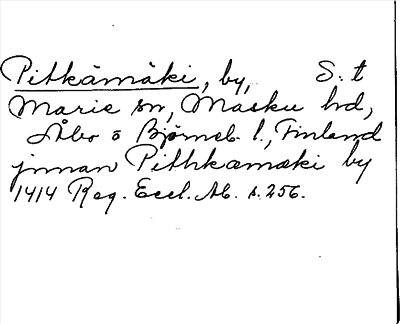 Pitkämäki, by, S:t
Marie sn, Masku hd,
Åbo o Björneb. l., Finland
jnnan Pithkæmæki by
1414 Reg. Eccl. Ab. s. 256.